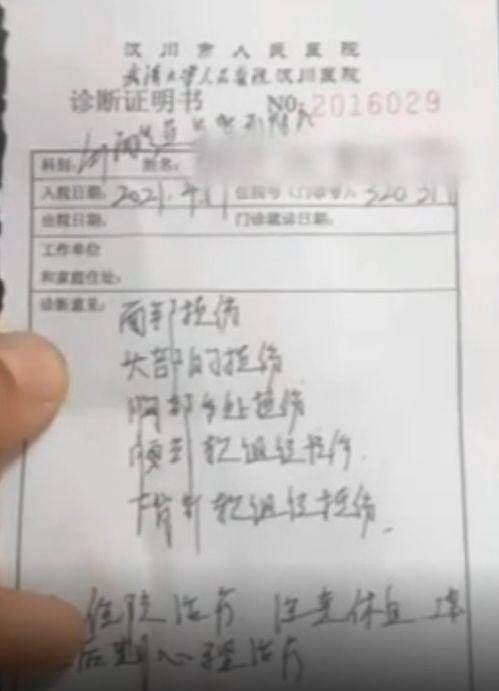 汉川市人民医院
武汉大学人民医院汉川医院
诊断证明书 No: 2016029
科别: 姓名:
入院日期: 2021.4.1 住院号(门诊号)
出院日期: 门诊就诊日期:
工作单位
和家庭住址:
诊断意见: 面部挫伤
头部的挫伤
胸部多处挫伤
腰部软组织挫伤.
下背部软组织挫伤.
住院治疗 注意休息
后期心理治疗